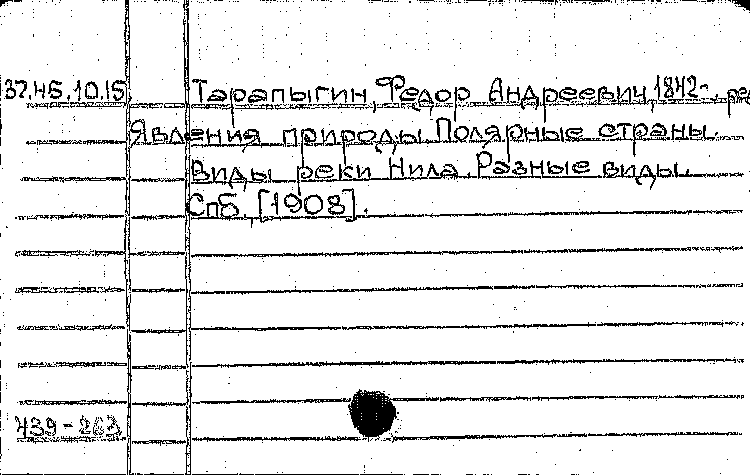 37.45.10.15 Тарапыгин, Федор Андреевич, 1842-, ред
Явления природы. Полярные страны.
Виды реки Нила. Разные виды.
Спб. [1908].
439-263